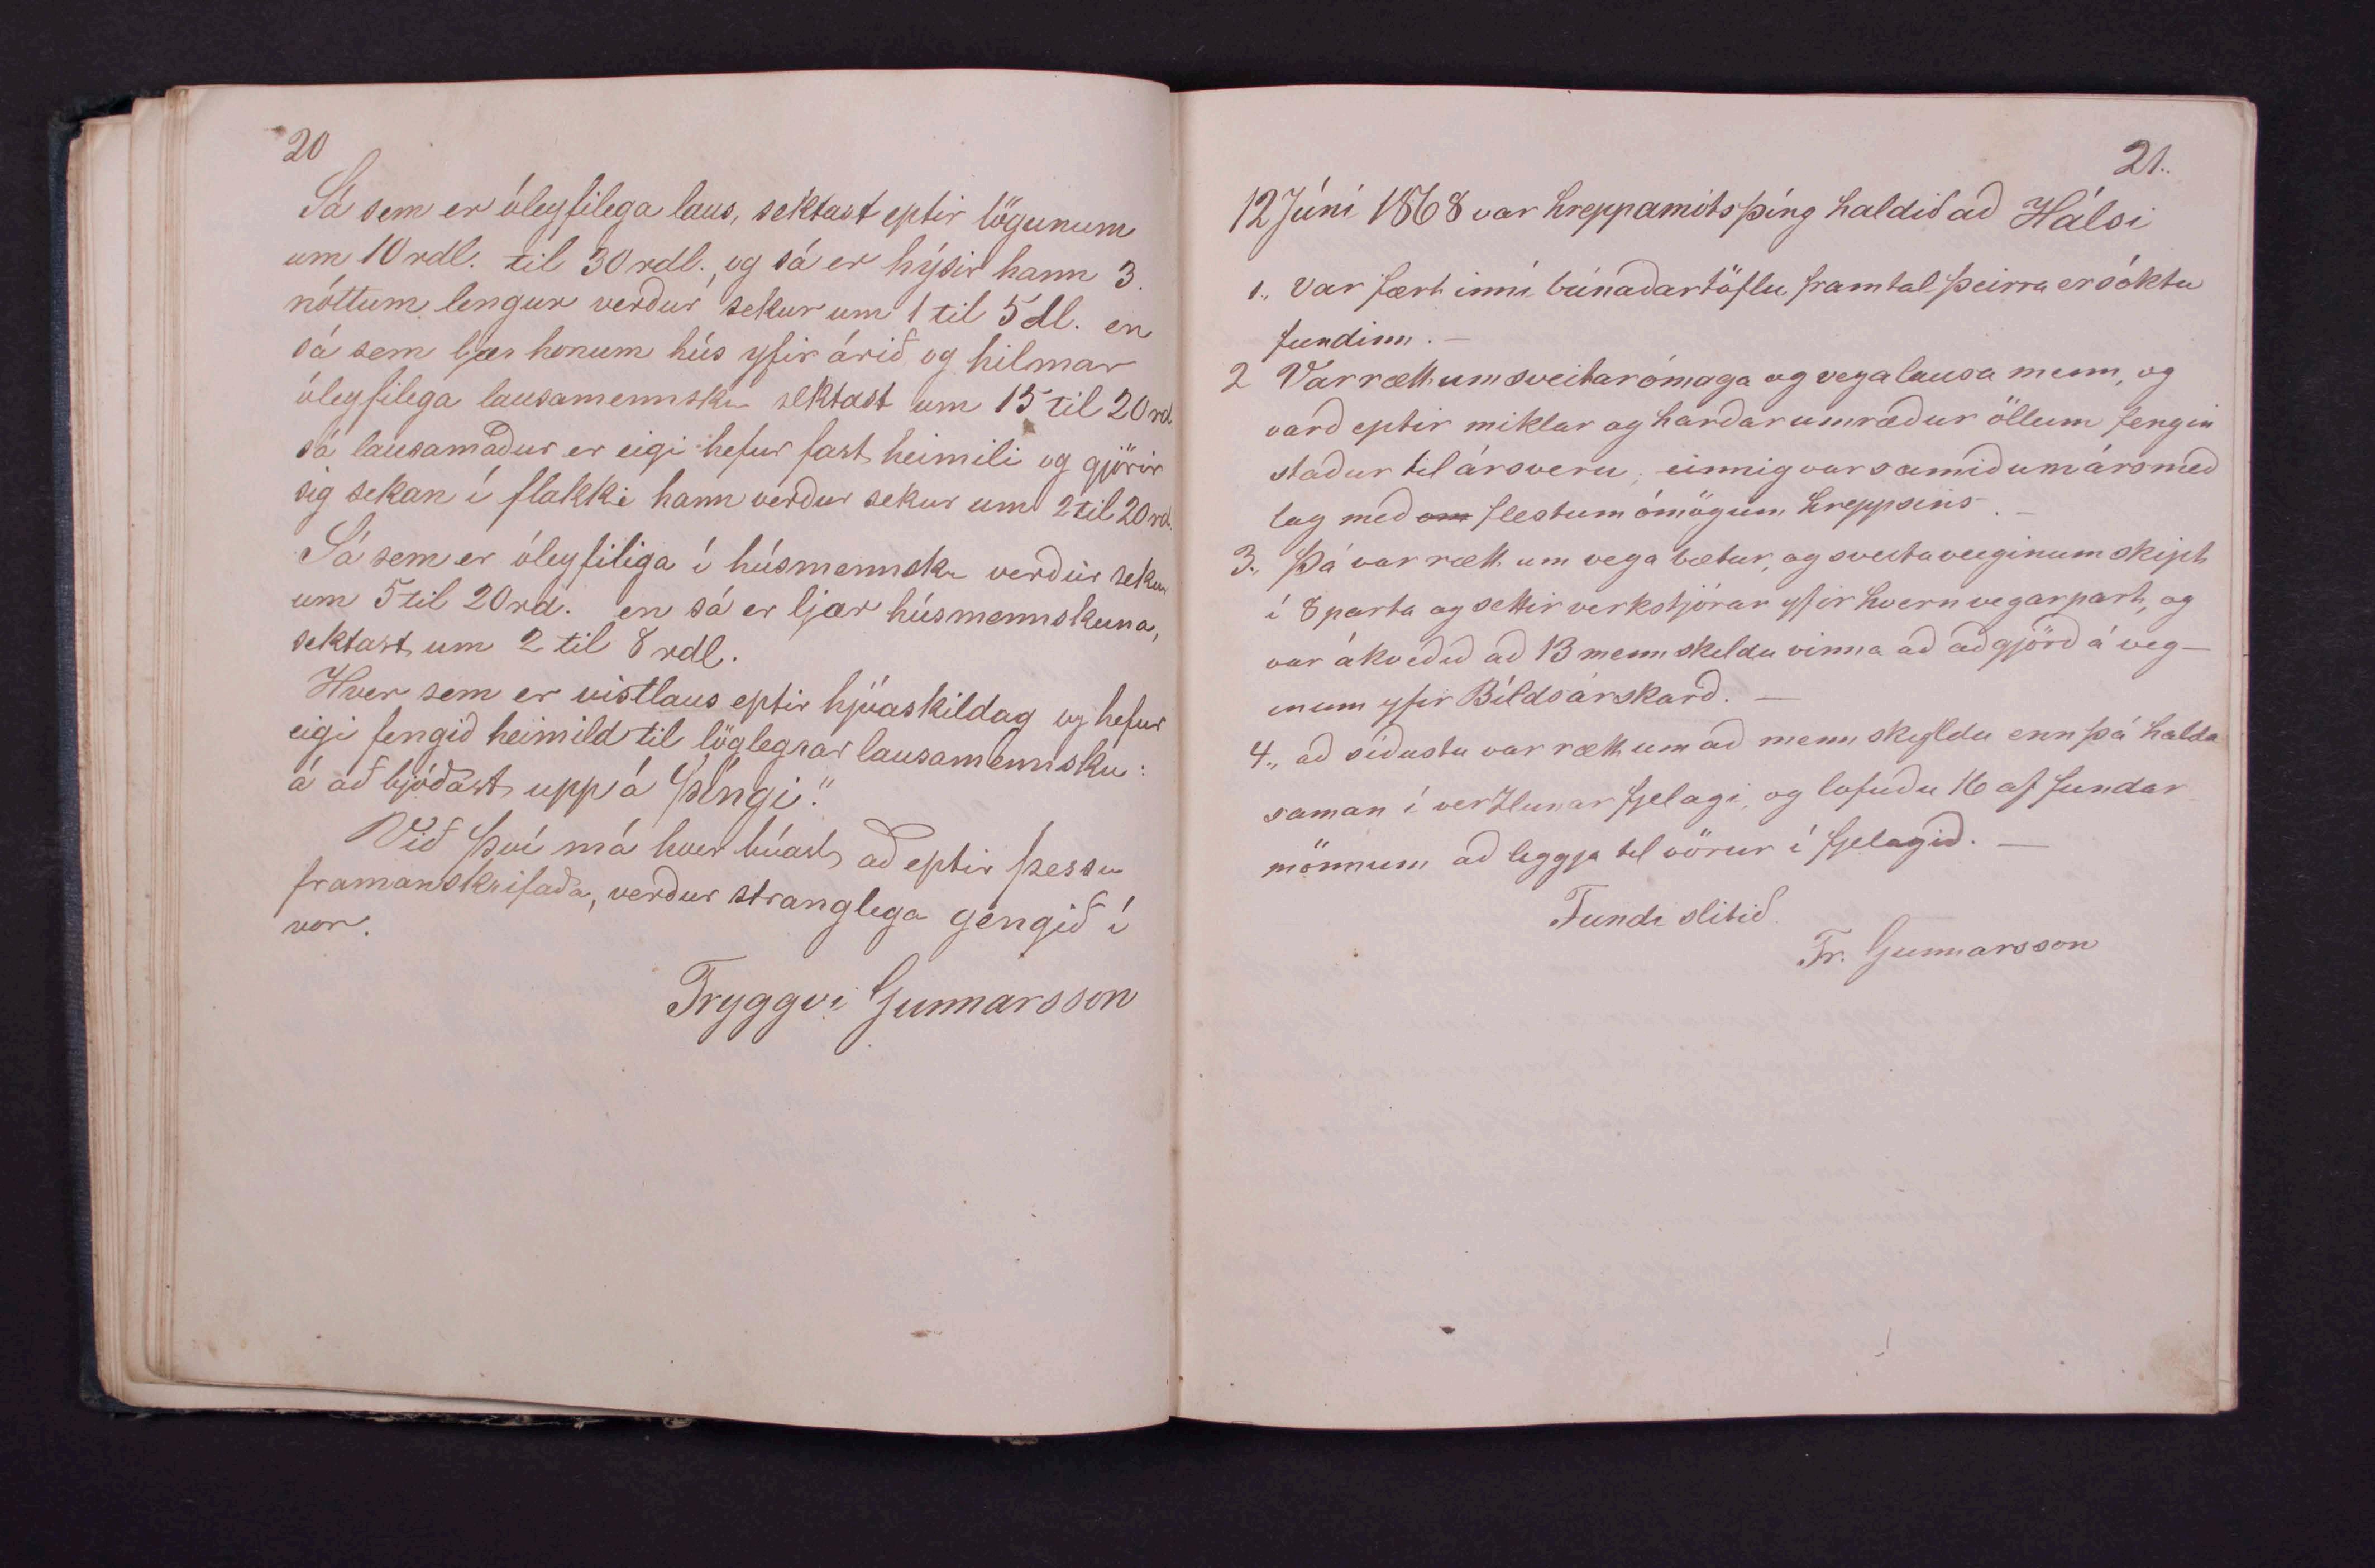 20
Sá sem er óleyfilega laus, sektast eptir lögunum
um 10 rdl. til 30 rdl., og sá er hýsir hann 3.
nóttum lengur verður sekur um 1 til 5 dl. en
sá sem ljær honum hús yfir árið og hilmar
óleyfilega lausamennsku sektast um 15 til 20 rd.
sá lausamaður er eigi hefur fast heimili og gjörir
sig sekan í flakki hann verður sekur um 2 til 20 rd.
Sá sem er óleyfiliga í húsmennsku verður sekur
um 5 til 20 rd. en sá er ljær húsmennskuna,
sektast um 2 til 8 rdl.
Hver sem er vistlaus eptir hjúaskildag og hefur
eigi fengið heimild til löglegrar lausamennsku:
á að bjóðast upp á þíngi."
Við því má hver búast að eptir þessu
framanskrifaða, verður stranglega gengið í
vor.
Tryggvi Gunnarsson
21.
12 Júní 1868 var hreppamótsþíng haldið að Hálsi
1., Var fært inní búnaðartöflu framtal þeirra er sóktu
fundinn. —
2 Var rætt um sveitarómaga og vegalausa menn, og
varð eptir miklar og harðar umræður öllum fengin
staður til ársveru; einnig var samið um ársmeð
lag með om flestum ómögum hreppsins. —
3., Þá var rætt um vega bætur, og sveitaveiginum skipt
í 8 parta og settir verkstjórar yfir hvern vegarpart, og
var ákveðið að 13 menn skildu vinna að aðgjörð á veg-
inum yfir Bíldsárskarð. —
4., að síðustu var rætt um að menn skyldu enn þá halda
saman í verzlunar fjelagi, og lofuðu 16 af fundar
mönnum að leggja til vörur í fjelagið. —
Fundi slitið.
Tr. Gunnarsson